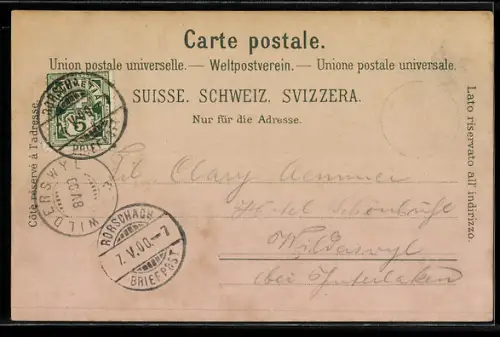 Carte postale.
Union postale universelle. — Weltpostverein. — Unione postale universale.
SUISSE. SCHWEIZ. SVIZZERA.
Nur für die Adresse.
Côté réservé à l'adresse.
Lato riservato all' indirizzo.
RORSCHACH
BRIEFPOST
5
WILDERSWYL
RORSCHACH
7.V.00.-7
BRIEFPOST
Hotel Schönbühl
Wilderswyl
bei Interlaken